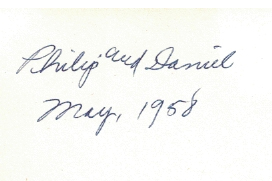 Philip and Daniel
May, 1958